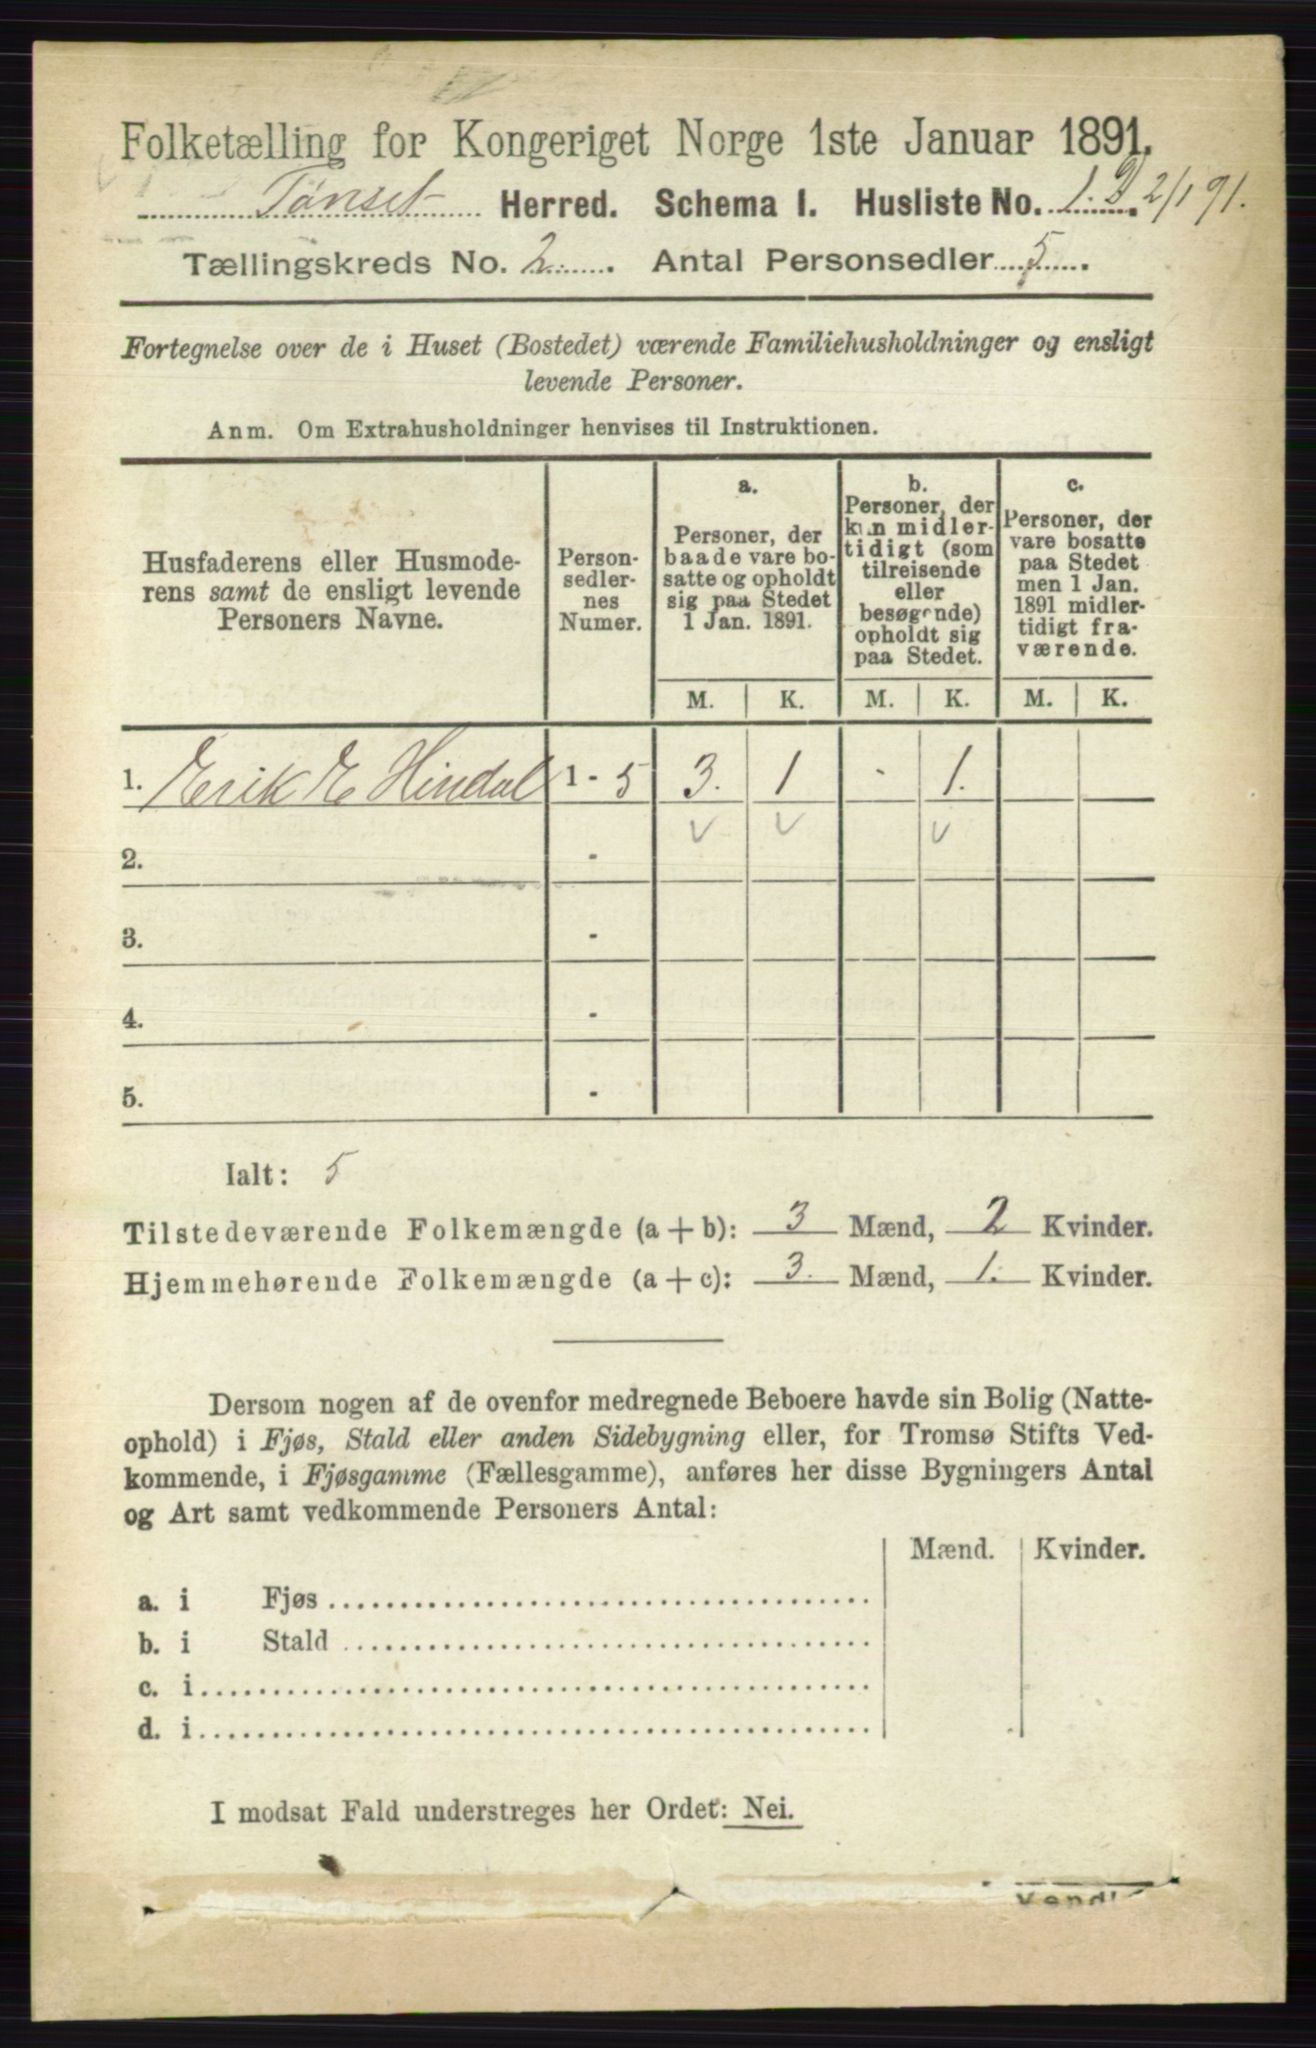 Folketælling for Kongeriget Norge 1ste Januar 1891.
Tønset Herred. Schema I. Husliste No. 1. D 2/1 91.
Tællingskreds No. 2. Antal Personsedler 5.
Fortegnelse over de i Huset (Bostedet) værende Familiehusholdninger og ensligt
levende Personer.
Anm. Om Extrahusholdninger henvises til Instruktionen.
Husfaderens eller Husmode-
rens samt de ensligt levende
Personers Navne.
Person-
sedler-
nes
Numer.
a.
Personer, der
baade vare bo-
satte og opholdt
sig paa Stedet
1 Jan. 1891.
b.
Personer, der
kun midler-
tidigt (som
tilreisende
eller
besøgende)
opholdt sig
paa Stedet.
c.
Personer, der
vare bosatte
paa Stedet
men 1 Jan.
1891 midler-
tidigt fra-
værende.
M. K. M. K. M. K.
1. Erik E Hindal 1 - 5 3. 1 - 1.
2. -
3. -
4. -
5. -
Ialt: 5
Tilstedeværende Folkemængde (a + b): 3 Mænd, 2 Kvinder.
Hjemmehørende Folkemængde (a + c): 3. Mænd, 1. Kvinder.
Dersom nogen af de ovenfor medregnede Beboere havde sin Bolig (Natte-
ophold) i Fjøs, Stald eller anden Sidebygning eller, for Tromsø Stifts Ved-
kommende, i Fjøsgamme (Fællesgamme), anføres her disse Bygningers Antal
og Art samt vedkommende Personers Antal:
Mænd. Kvinder.
a. i Fjøs
b. i Stald
c. i
d. i
I modsat Fald understreges her Ordet: Nei.
Vend!